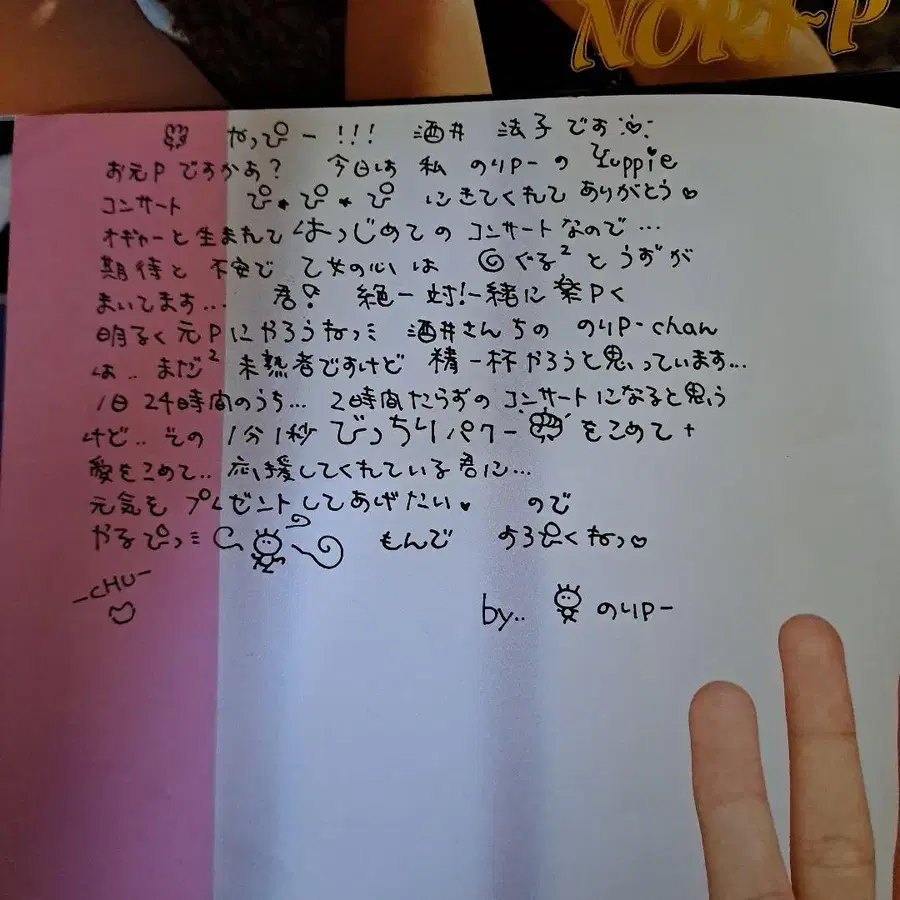 NORI-P
やっぴー!!! 酒井 法子です
お元Pですかあ? 今日は 私 のりP-の Yuppie
コンサート ぴ★ぴ★ぴ にきてくれて ありがとう♡
オギャーと生まれて はっじめての コンサートなので…
期待と 不安で 乙女の心は ぐる²とうずが
まいてます… 君! 絶ー対!一緒に楽Pく
明るく元Pにやろうねっミ 酒井さんちの のりP-chan
は.. まだ² 未熟者ですけど 精一杯やろうと思っています…
1日24時間のうち… 2時間たらずのコンサートになると思う
けど.. その 1分1秒 びっちりパワーをこめて+
愛をこめて.. 応援してくれている君に…
元気を プレゼントしてあげたい♥ ので
やるぴっミ もんで よろぴくねっ♡
-CHU-
by.. のりP-